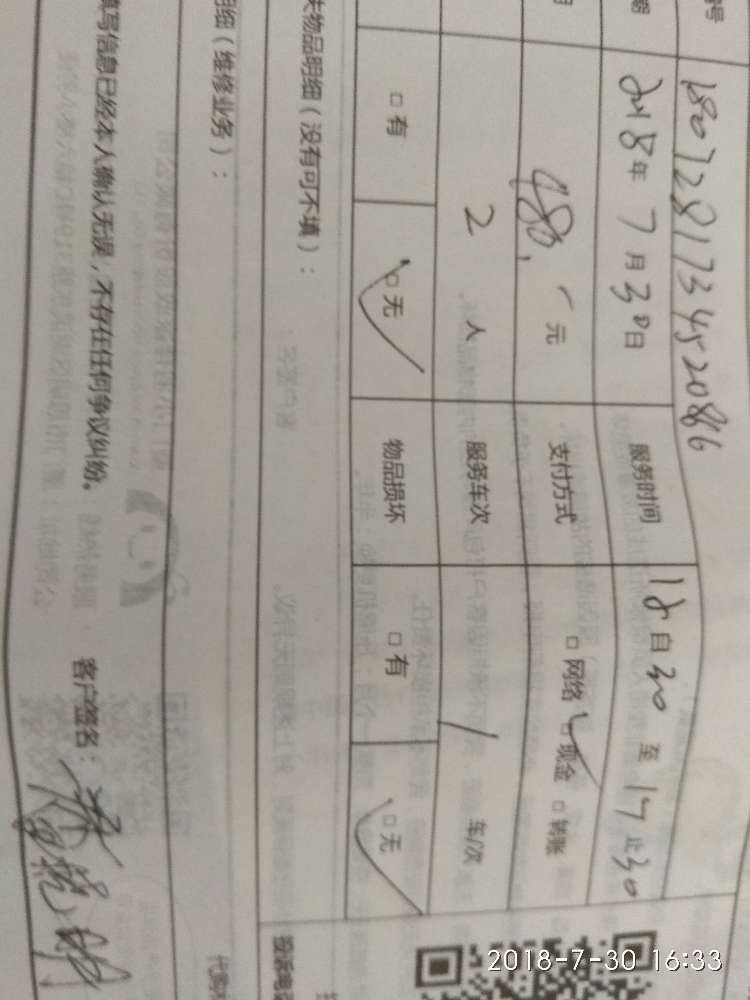 号 180728173452086
期 2018年7月30日 服务时间 自30至17止30
480. 元 支付方式 □网络 □现金 □转账
2人 服务车次 / 车/次
□有 □无 物品损坏 □有 □无
失物品明细(没有可不填):
明细(维修业务):
填写信息已经本人确认无误,不存在任何争议纠纷。 客户签名:
2018-7-30 16:33